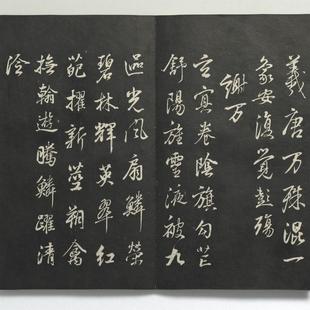 羲唐万殊混一
象安復覺彭殤
謝万
玄冥卷陰旗句芒
舒陽旌靈液被九
區光風扇鱗榮
碧林輝英翠紅
葩擢新莖翔禽
撫翰遊騰鱗躍清
泠